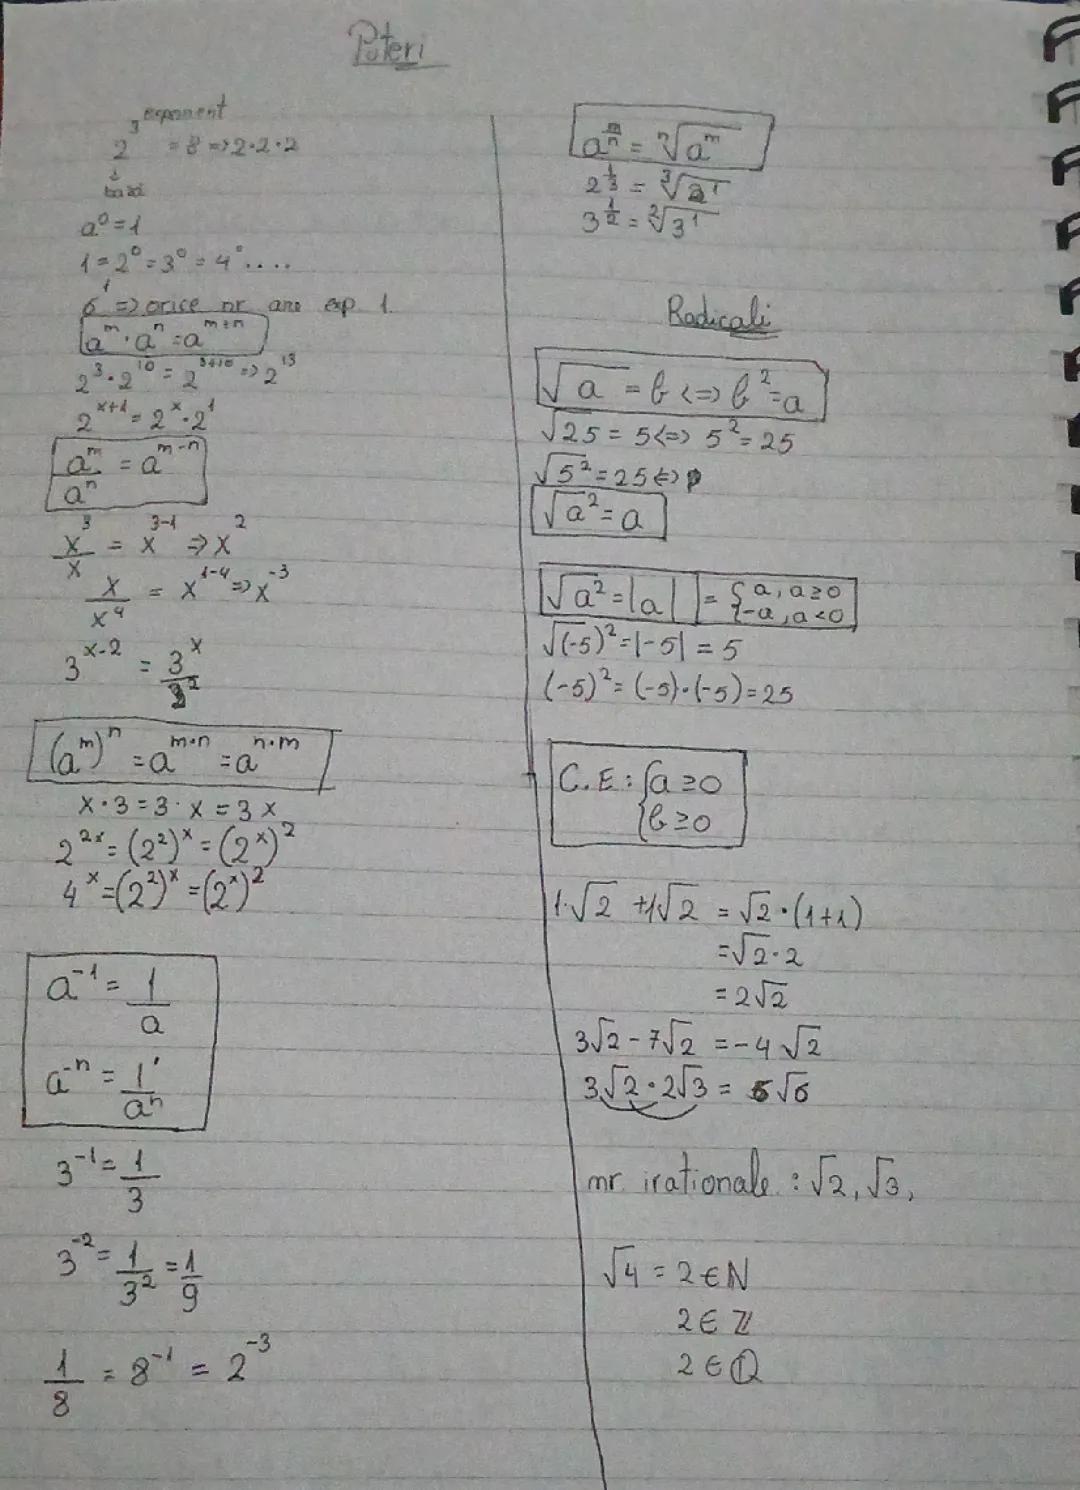 Puteri
exponent
2³ = 8 => 2·2·2
↓
bază
a⁰ = 1
1 = 2⁰ = 3⁰ = 4⁰ ....
6¹ => orice nr are exp 1.
aᵐ · aⁿ = aᵐ⁺ⁿ
2³ · 2¹⁰ = 2³⁺¹⁰ => 2¹³
2ˣ⁺¹ = 2ˣ · 2¹
aᵐ/aⁿ = aᵐ⁻ⁿ
x³/x = x³⁻¹ => x²
x/x⁴ = x¹⁻⁴ => x⁻³
3ˣ⁻² = 3ˣ/3²
(aᵐ)ⁿ = aᵐ·ⁿ = aⁿ·ᵐ
x · 3 = 3 · x = 3x
2²ˣ = (2²)ˣ = (2ˣ)²
4ˣ = (2²)ˣ = (2ˣ)²
a⁻¹ = 1/a
a⁻ⁿ = 1/aⁿ
3⁻¹ = 1/3
3⁻² = 1/3² = 1/9
1/8 = 8⁻¹ = 2⁻³
a^(m/n) = ⁿ√aᵐ
2^(1/3) = ³√2¹
3^(1/2) = ²√3¹
Radicali
√a = b <=> b² = a
√25 = 5 <=> 5² = 25
√5² = 25 <=>
√a² = a
√a² = |a| = { a, a ≥ 0
{ -a, a < 0
√(-5)² = |-5| = 5
(-5)² = (-5)·(-5) = 25
C.E: { a ≥ 0
{ b ≥ 0
1·√2 + 1√2 = √2·(1+1)
= √2·2
= 2√2
3√2 - 7√2 = -4√2
3√2 · 2√3 = 6√6
nr. iraționale : √2, √3,
√4 = 2 ∈ N
2 ∈ ℤ
2 ∈ ℚ